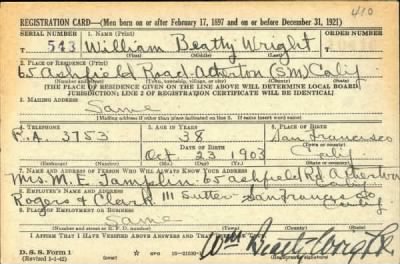 410
REGISTRATION CARD—(Men born on or after February 17, 1897 and on or before December 31, 1921)
SERIAL NUMBER 1. NAME (Print) ORDER NUMBER
T 543 William Beatty Wright
(First) (Middle) (Last)
2. PLACE OF RESIDENCE (Print)
65 Ashfield Road Atherton (SM) Calif
(Number and street) (Town, township, village, or city) (County) (State)
[THE PLACE OF RESIDENCE GIVEN ON THE LINE ABOVE WILL DETERMINE LOCAL BOARD
JURISDICTION; LINE 2 OF REGISTRATION CERTIFICATE WILL BE IDENTICAL]
3. MAILING ADDRESS
Same
[Mailing address if other than place indicated on line 2. If same insert word same]
4. TELEPHONE 5. AGE IN YEARS 6. PLACE OF BIRTH
P.A. 3753 38 San Francisco
DATE OF BIRTH
Oct 23 1903 Calif
7. NAME AND ADDRESS OF PERSON WHO WILL ALWAYS KNOW YOUR ADDRESS
Mrs M. E. Tamplin 65 Ashfield Rd Atherton
Calif
8. EMPLOYER'S NAME AND ADDRESS
Rogers & Clark 111 Sutter San Francisco
9. PLACE OF EMPLOYMENT OR BUSINESS
Same
(Number and street or R. F. D. number) (Town) (County) (State)
I AFFIRM THAT I HAVE VERIFIED ABOVE ANSWERS AND THAT THEY ARE TRUE.
D. S. S. Form 1
(Revised 1-1-42) GPO
Wm Beatty Wright